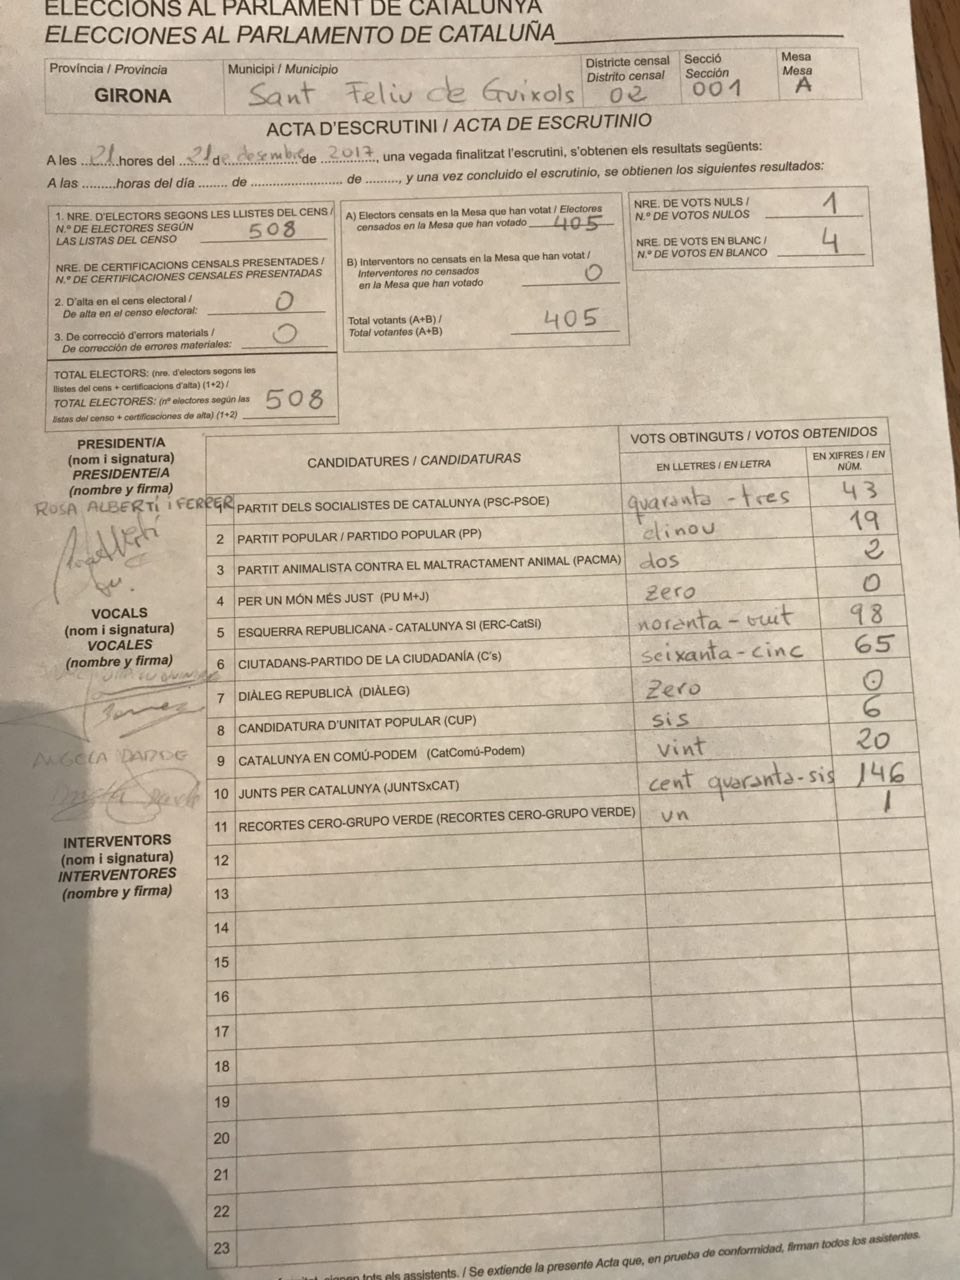 ELECCIONS AL PARLAMENT DE CATALUNYA
ELECCIONES AL PARLAMENTO DE CATALUÑA
Província / Provincia
GIRONA
Municipi / Municipio
Sant Feliu de Guixols
Districte censal
Distrito censal
02
Secció
Sección
001
Mesa
Mesa
A
ACTA D'ESCRUTINI / ACTA DE ESCRUTINIO
A les 21 hores del 21 de desembre de 2017, una vegada finalitzat l'escrutini, s'obtenen els resultats següents:
A las .........horas del día ........ de ........................ de ........., y una vez concluido el escrutinio, se obtienen los siguientes resultados:
1. NRE. D'ELECTORS SEGONS LES LLISTES DEL CENS /
N.º DE ELECTORES SEGÚN
LAS LISTAS DEL CENSO 508
NRE. DE CERTIFICACIONS CENSALS PRESENTADES /
N.º DE CERTIFICACIONES CENSALES PRESENTADAS
2. D'alta en el cens electoral /
De alta en el censo electoral: 0
3. De correcció d'errors materials /
De corrección de errores materiales: 0
TOTAL ELECTORS: (nre. d'electors segons les
llistes del cens + certificacions d'alta) (1+2) /
TOTAL ELECTORES: (nº electores según las
listas del censo + certificaciones de alta) (1+2) 508
A) Electors censats en la Mesa que han votat / Electores
censados en la Mesa que han votado 405
B) Interventors no censats en la Mesa que han votat /
Interventores no censados
en la Mesa que han votado 0
Total votants (A+B) /
Total votantes (A+B) 405
NRE. DE VOTS NULS /
N.º DE VOTOS NULOS 1
NRE. DE VOTS EN BLANC /
N.º DE VOTOS EN BLANCO 4
PRESIDENT/A
(nom i signatura)
PRESIDENTE/A
(nombre y firma)
ROSA ALBERTÍ i FERRER
VOCALS
(nom i signatura)
VOCALES
(nombre y firma)
ANGELA
INTERVENTORS
(nom i signatura)
INTERVENTORES
(nombre y firma)
CANDIDATURES / CANDIDATURAS
VOTS OBTINGUTS / VOTOS OBTENIDOS
EN LLETRES / EN LETRA
EN XIFRES / EN NÚM.
PARTIT DELS SOCIALISTES DE CATALUNYA (PSC-PSOE) quaranta-tres 43
2 PARTIT POPULAR / PARTIDO POPULAR (PP) dinou 19
3 PARTIT ANIMALISTA CONTRA EL MALTRACTAMENT ANIMAL (PACMA) dos 2
4 PER UN MÓN MÉS JUST (PU M+J) zero 0
5 ESQUERRA REPUBLICANA - CATALUNYA SI (ERC-CatSí) noranta-vuit 98
6 CIUTADANS-PARTIDO DE LA CIUDADANÍA (C's) seixanta-cinc 65
7 DIÀLEG REPUBLICÀ (DIÀLEG) zero 0
8 CANDIDATURA D'UNITAT POPULAR (CUP) sis 6
9 CATALUNYA EN COMÚ-PODEM (CatComú-Podem) vint 20
10 JUNTS PER CATALUNYA (JUNTSxCAT) cent quaranta-sis 146
11 RECORTES CERO-GRUPO VERDE (RECORTES CERO-GRUPO VERDE) un 1
12
13
14
15
16
17
18
19
20
21
22
23
signen tots els assistents. / Se extiende la presente Acta que, en prueba de conformidad, firman todos los asistentes.